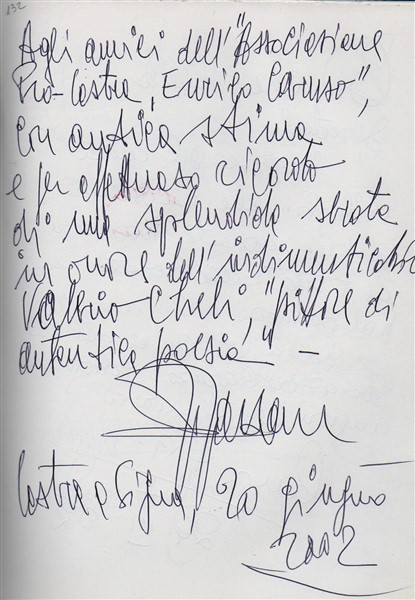 132
Agli amici dell'"Associazione
Pro-Lastra, Enrico Caruso",
con antica stima
e per affettuoso ricordo
di una splendida serata
in onore dell'indimenticabile
Valerio Cheli, "pittore di
autentica poesia" –
Lastra a Signa, 20 giugno
2002